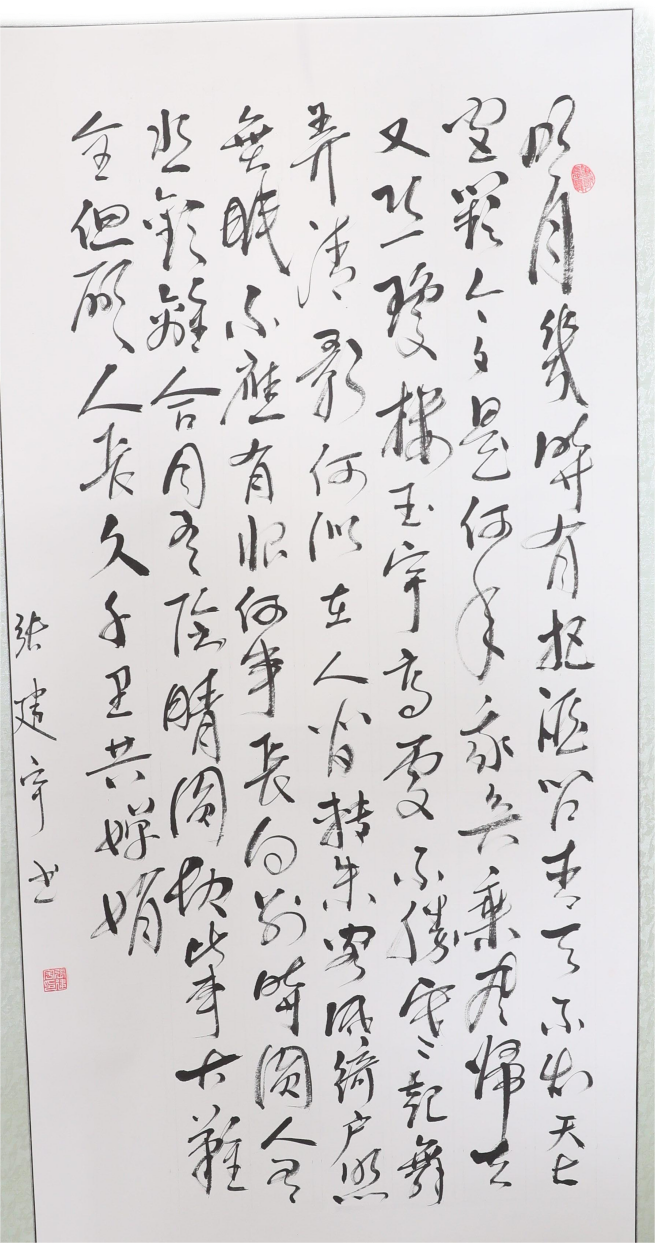 明月幾時有把酒問青天不知天上
宮闕今夕是何年我欲乘風歸去
又恐瓊樓玉宇高處不勝寒起舞
弄清影何似在人間轉朱閣低綺户照
無眠不應有恨何事長向别時圓人有
悲歡離合月有陰晴圓缺此事古難
全但願人長久千里共嬋娟
张建宇书